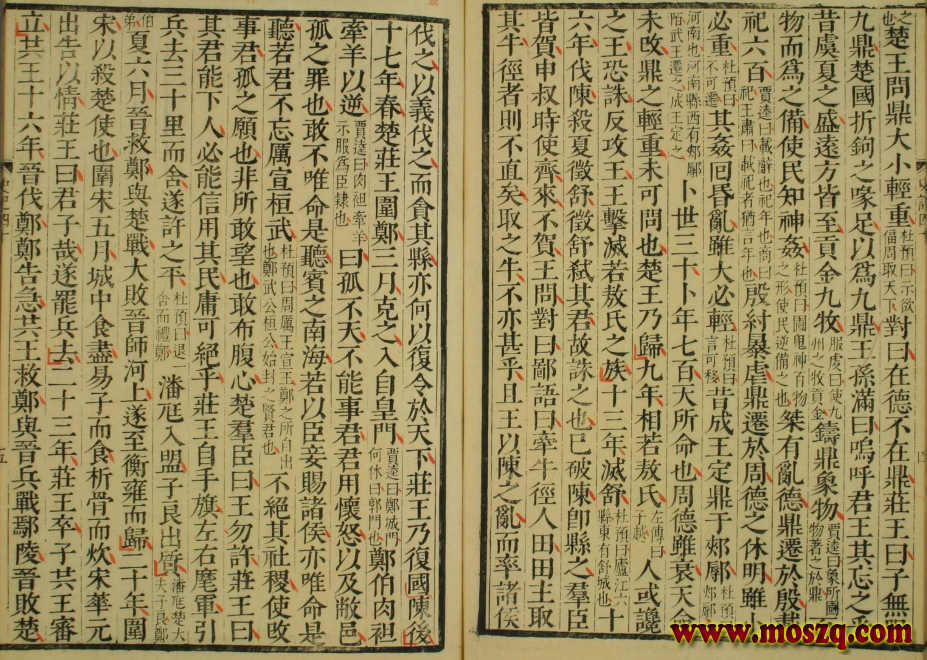 之也楚王問鼎大小輕重杜預曰示欲偪周取天下對曰在德不在鼎莊王曰子無
九鼎楚國折鉤之喙足以爲九鼎王孫滿曰嗚呼君王其忘之乎
昔虞夏之盛遠方皆至貢金九牧服虔曰使九州之牧貢金鑄鼎象物賈逵曰象所圖物著之於鼎
物而爲之備使民知神姦杜預曰圖鬼神百物之形使民逆備之也桀有亂德鼎遷於殷載
祀六百賈逵曰載辭也祀年也商曰祀王肅曰載祀者猶言年也殷紂暴虐鼎遷於周德之休明雖
必重杜預曰不可遷其姦回昏亂雖大必輕杜預曰言可移昔成王定鼎于郟鄏杜預曰郟鄏
河南也河南縣西有郟鄏陌武王遷之成王定之卜世三十卜年七百天所命也周德雖衰天命
未改鼎之輕重未可問也楚王乃歸九年相若敖氏左傳曰子越人或讒
之王王恐誅反攻王王擊滅若敖氏之族十三年滅舒杜預曰廬江六縣東有舒城也十
六年伐陳殺夏徵舒徵舒弒其君故誅之也已破陳卽縣之羣臣
皆賀申叔時使齊來不賀王問對曰鄙語曰牽牛徑人田田主取
其牛徑者則不直矣取之牛不亦甚乎且王以陳之亂而率諸侯
伐之以義伐之而貪其縣亦何以復令於天下莊王乃復國陳後
十七年春楚莊王圍鄭三月克之入自皇門賈逵曰鄭城門何休曰郭門也鄭伯肉袒
牽羊以逆賈逵曰肉袒牽羊示服爲臣隸也曰孤不天不能事君君用懷怒以及敝邑
孤之罪也敢不唯命是聽賓之南海若以臣妾賜諸侯亦唯命是
聽若君不忘厲宣桓武杜預曰周厲王宣王鄭之所自出也鄭武公桓公始封之賢君也不絕其社稷使改
事君孤之願也非所敢望也敢布腹心楚羣臣曰王勿許莊王曰
其君能下人必能信用其民庸可絕乎莊王自手旗左右麾軍引
兵去三十里而舍遂許之平杜預曰退一舍而禮鄭潘尫入盟子良出質潘尫楚大夫子良鄭
伯弟夏六月晉救鄭與楚戰大敗晉師河上遂至衡雍而歸二十年圍
宋以殺楚使也圍宋五月城中食盡易子而食析骨而炊宋華元
出告以情莊王曰君子哉遂罷兵去二十三年莊王卒子共王審
立共王十六年晉伐鄭鄭告急共王救鄭與晉兵戰鄢陵晉敗楚
www.moszq.com